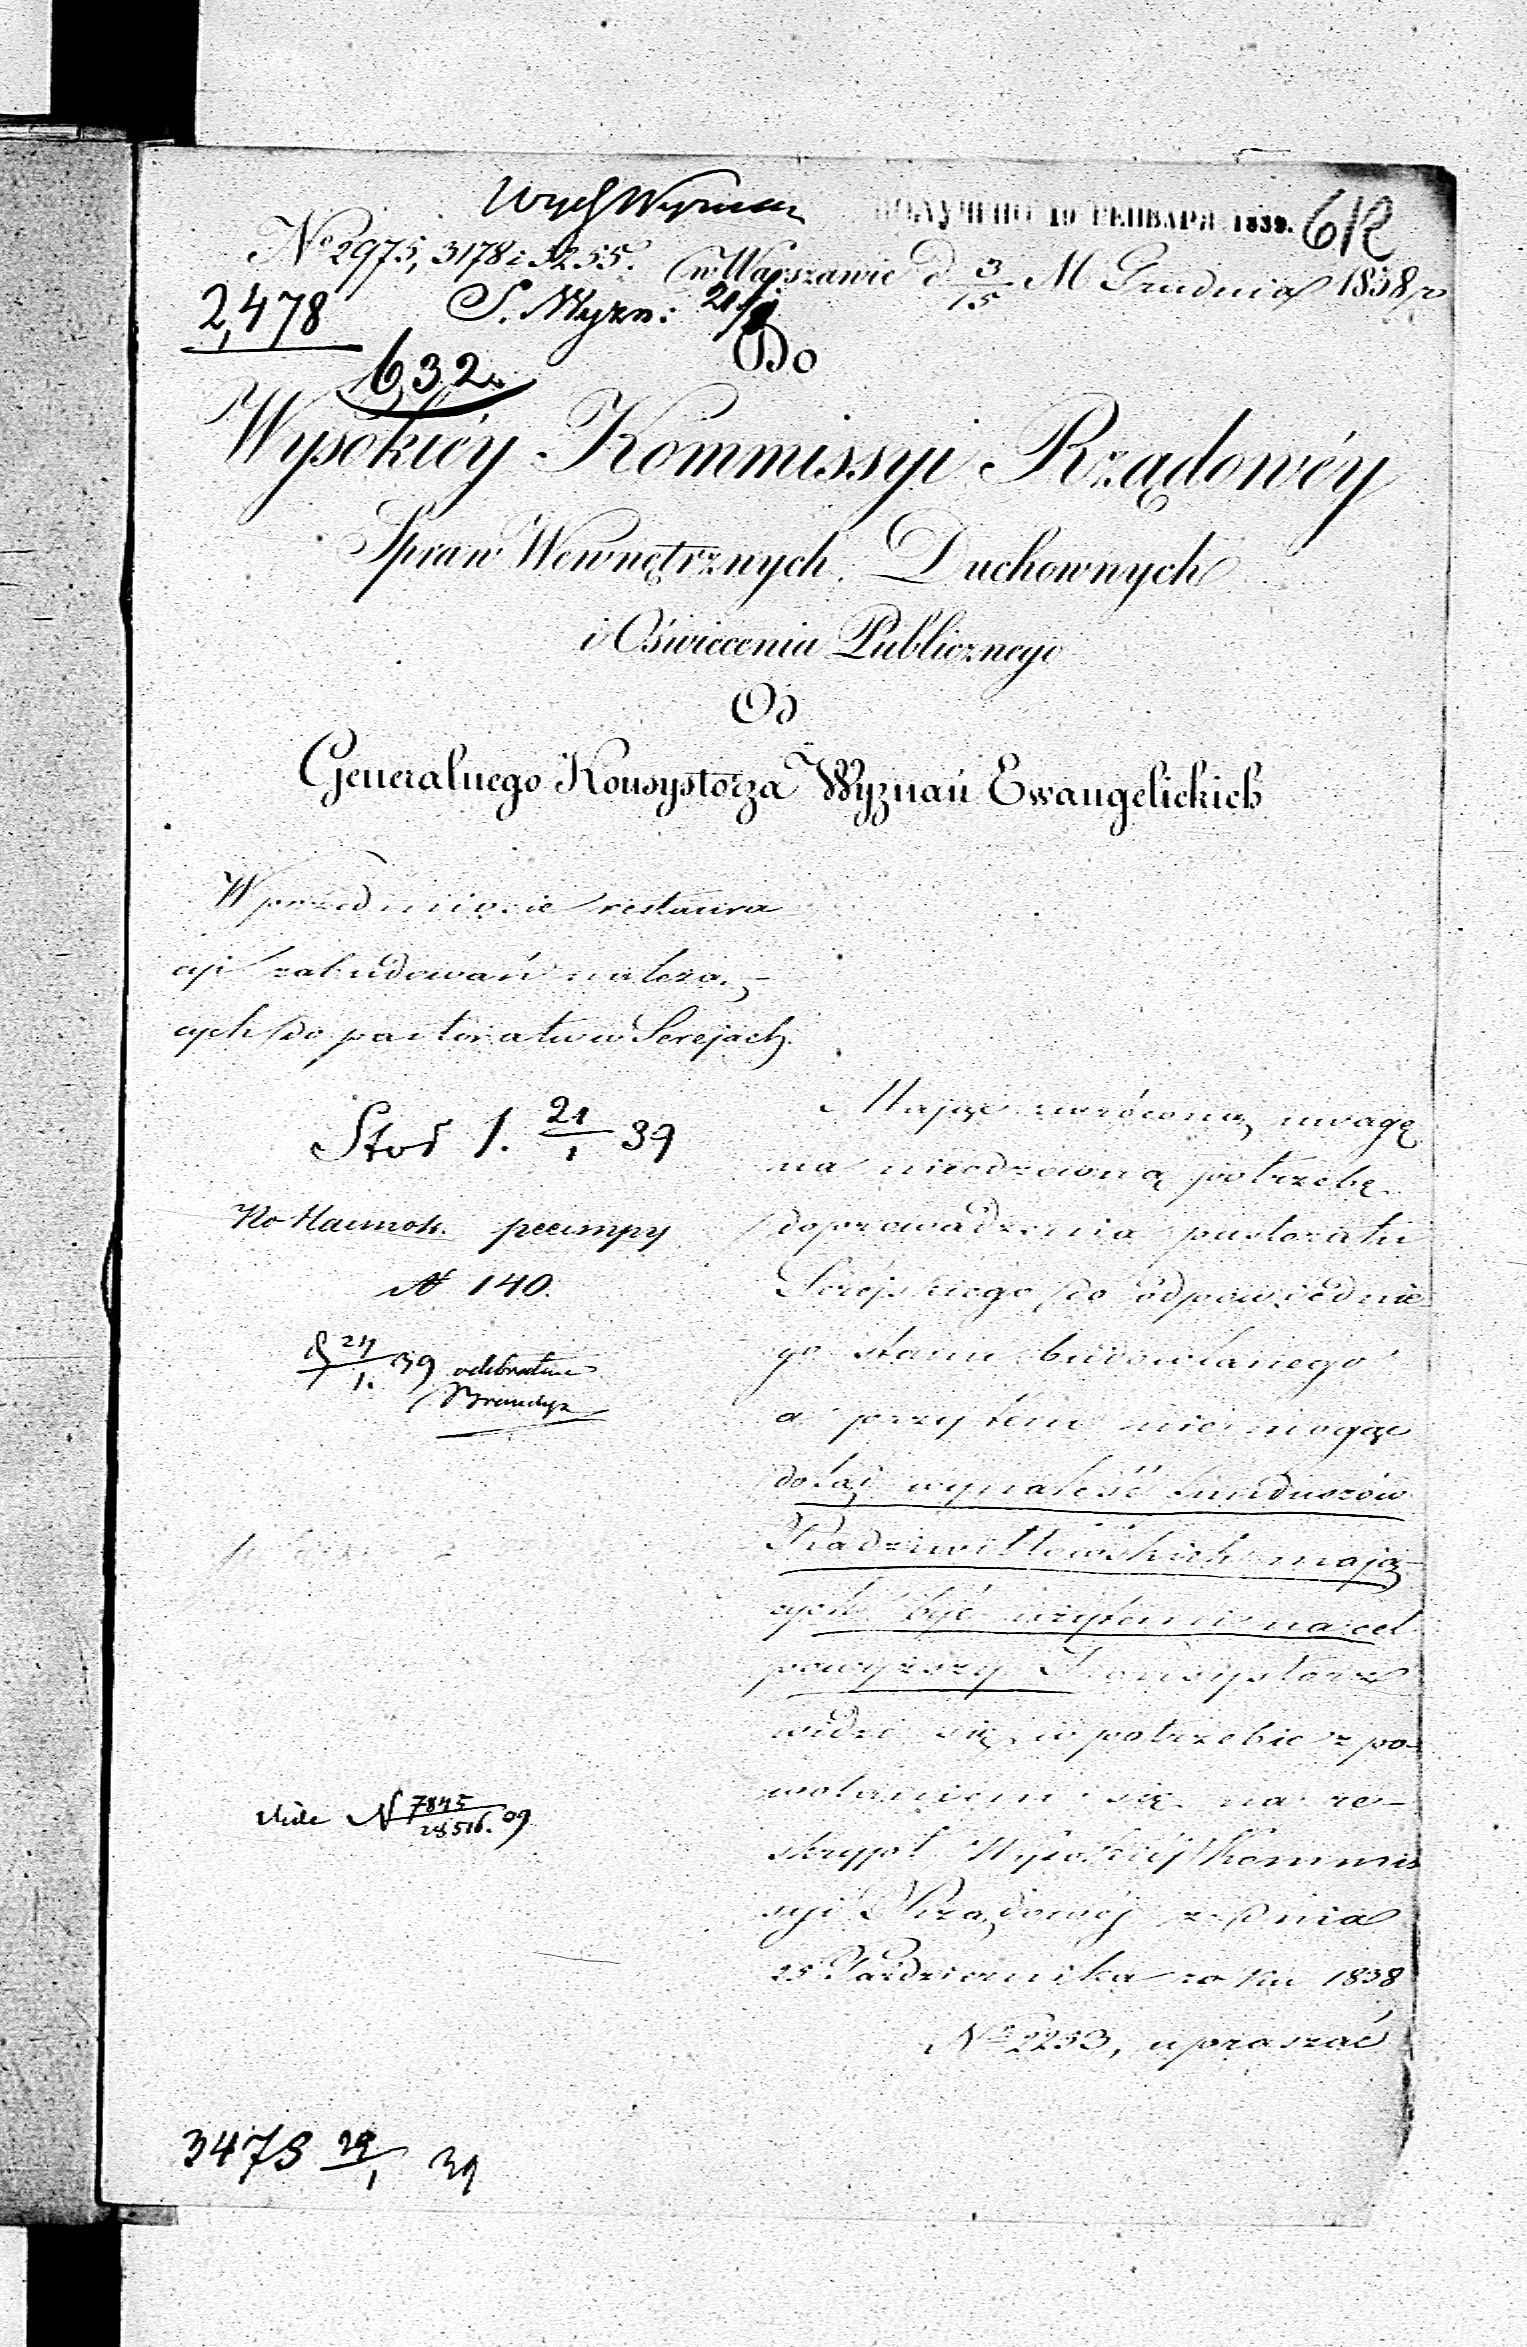 ПОЛУЧЕНО 19 ГЕНВАРЯ 1839.
No 2975, 3178 i 3255. w Warszawie d 3/15 M Grudnia 1838 r
2,478
S. Wyzn: 21/1
632
Do
Wysokiéy Kommissyi Rządowéy
Spraw Wewnętrznych, Duchownych
i Oświecenia Publicznego
Od
Generalnego Konsystorza Wyznań Ewangelickich
W przedmiocie restaura
cyi zabudowań należą-
cych do pastoratu w Serejach.
1. 21/1 39
N 140.
24/1. 39 odebrałem
Mając zwróconą uwagę
na nieodzowną potrzebę
doprowadzenia pastoratu
Serejskiego do odpowiednie
go stanu budowlanego
a przytém nie mogąc
dotąd wynaleść funduszów
Radziwiłłowskich mają-
cych być użytemi na cel
powyższy Konsystorz
widzi się w potrzebie z po-
wołaniem się na re-
skrypt Wysokiéj Kommis
syi Rządowéj z dnia
25 Października roku 1838
No 2253, upraszać
Vide N 7845/28516. 39
3478 29/1 39